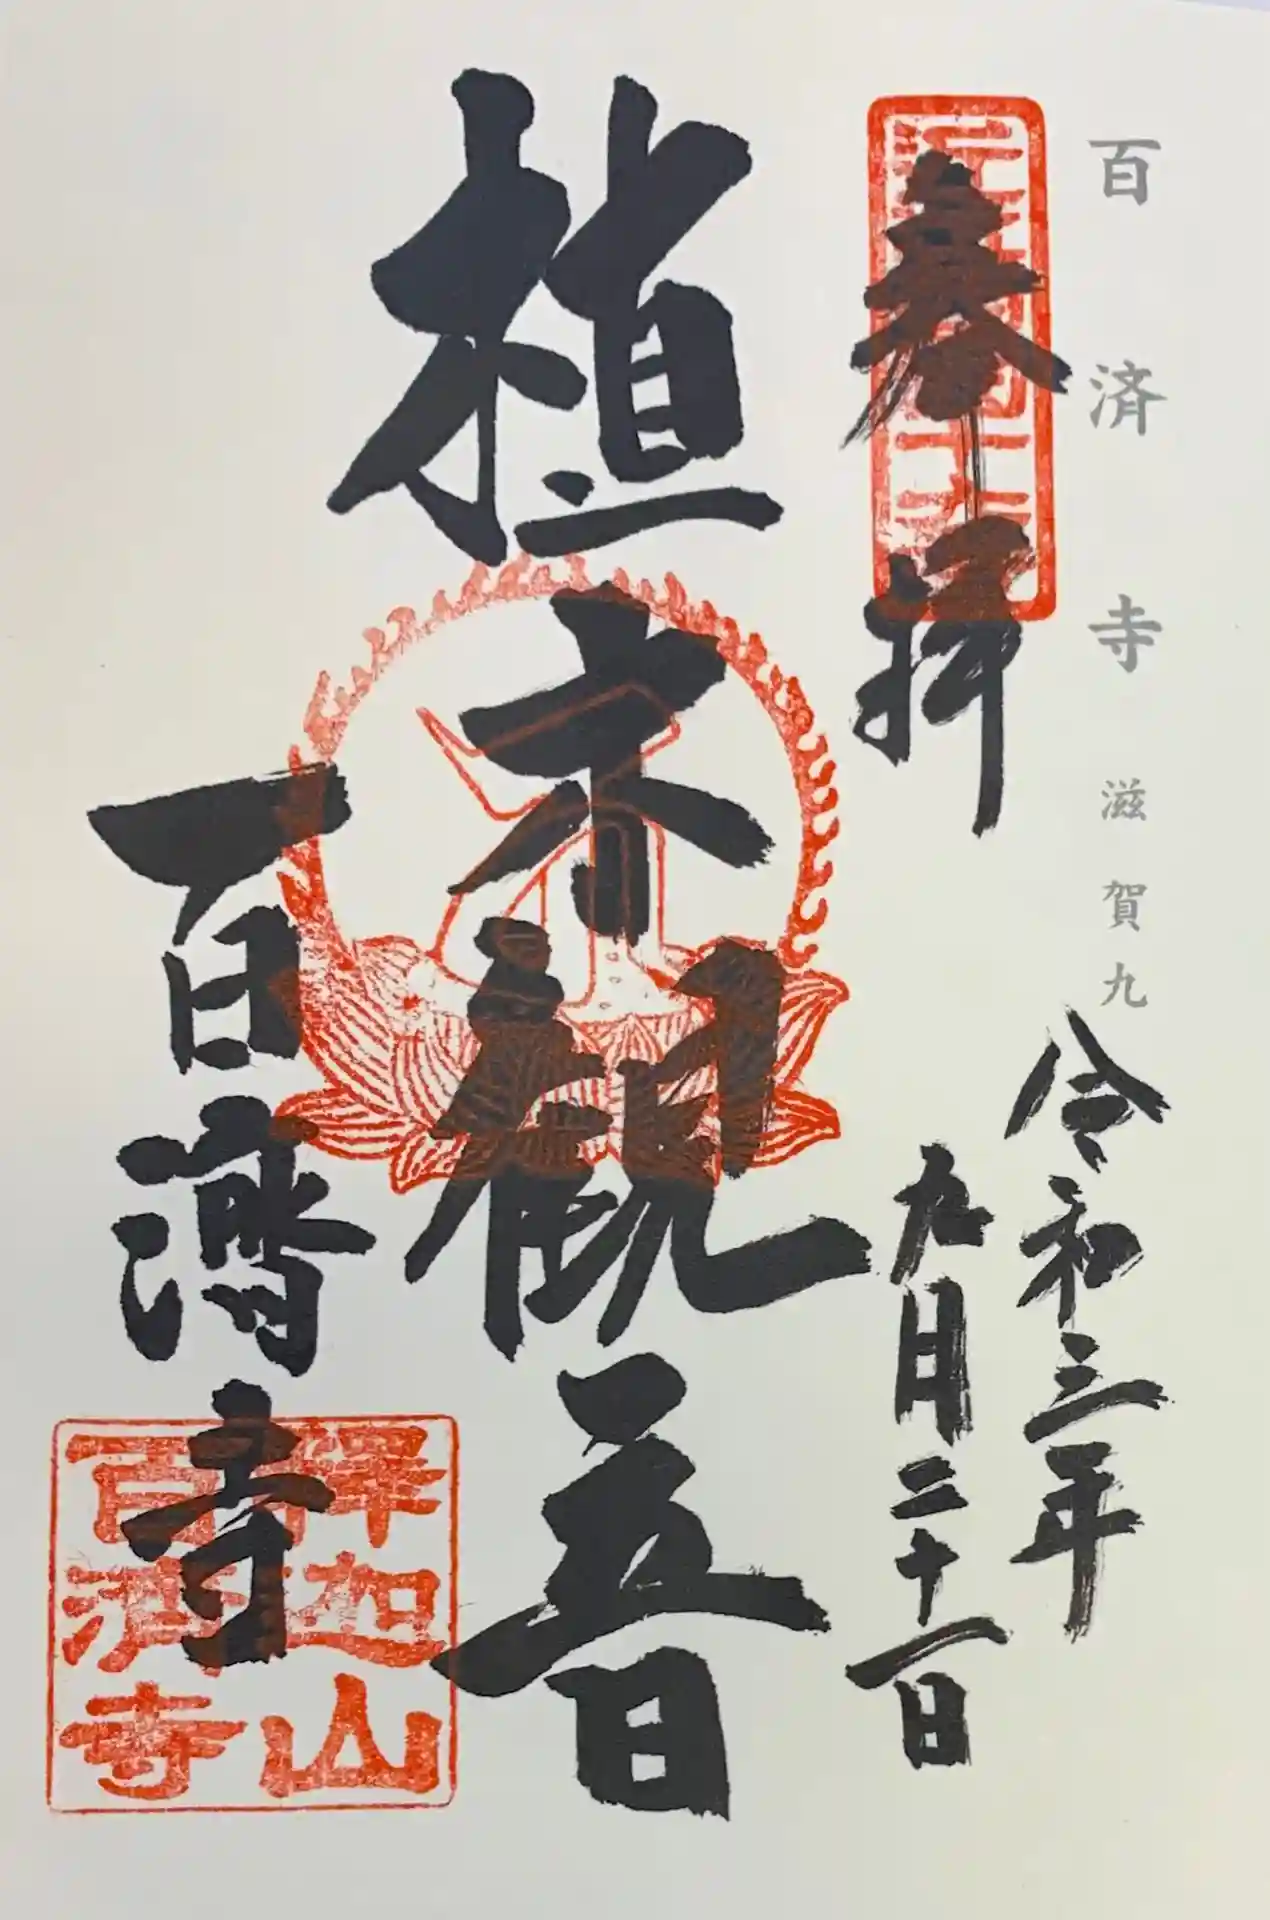 百済寺 滋賀九
奉拝
令和三年
九月二十一日
植木観音
百済寺
釈迦山
百済寺